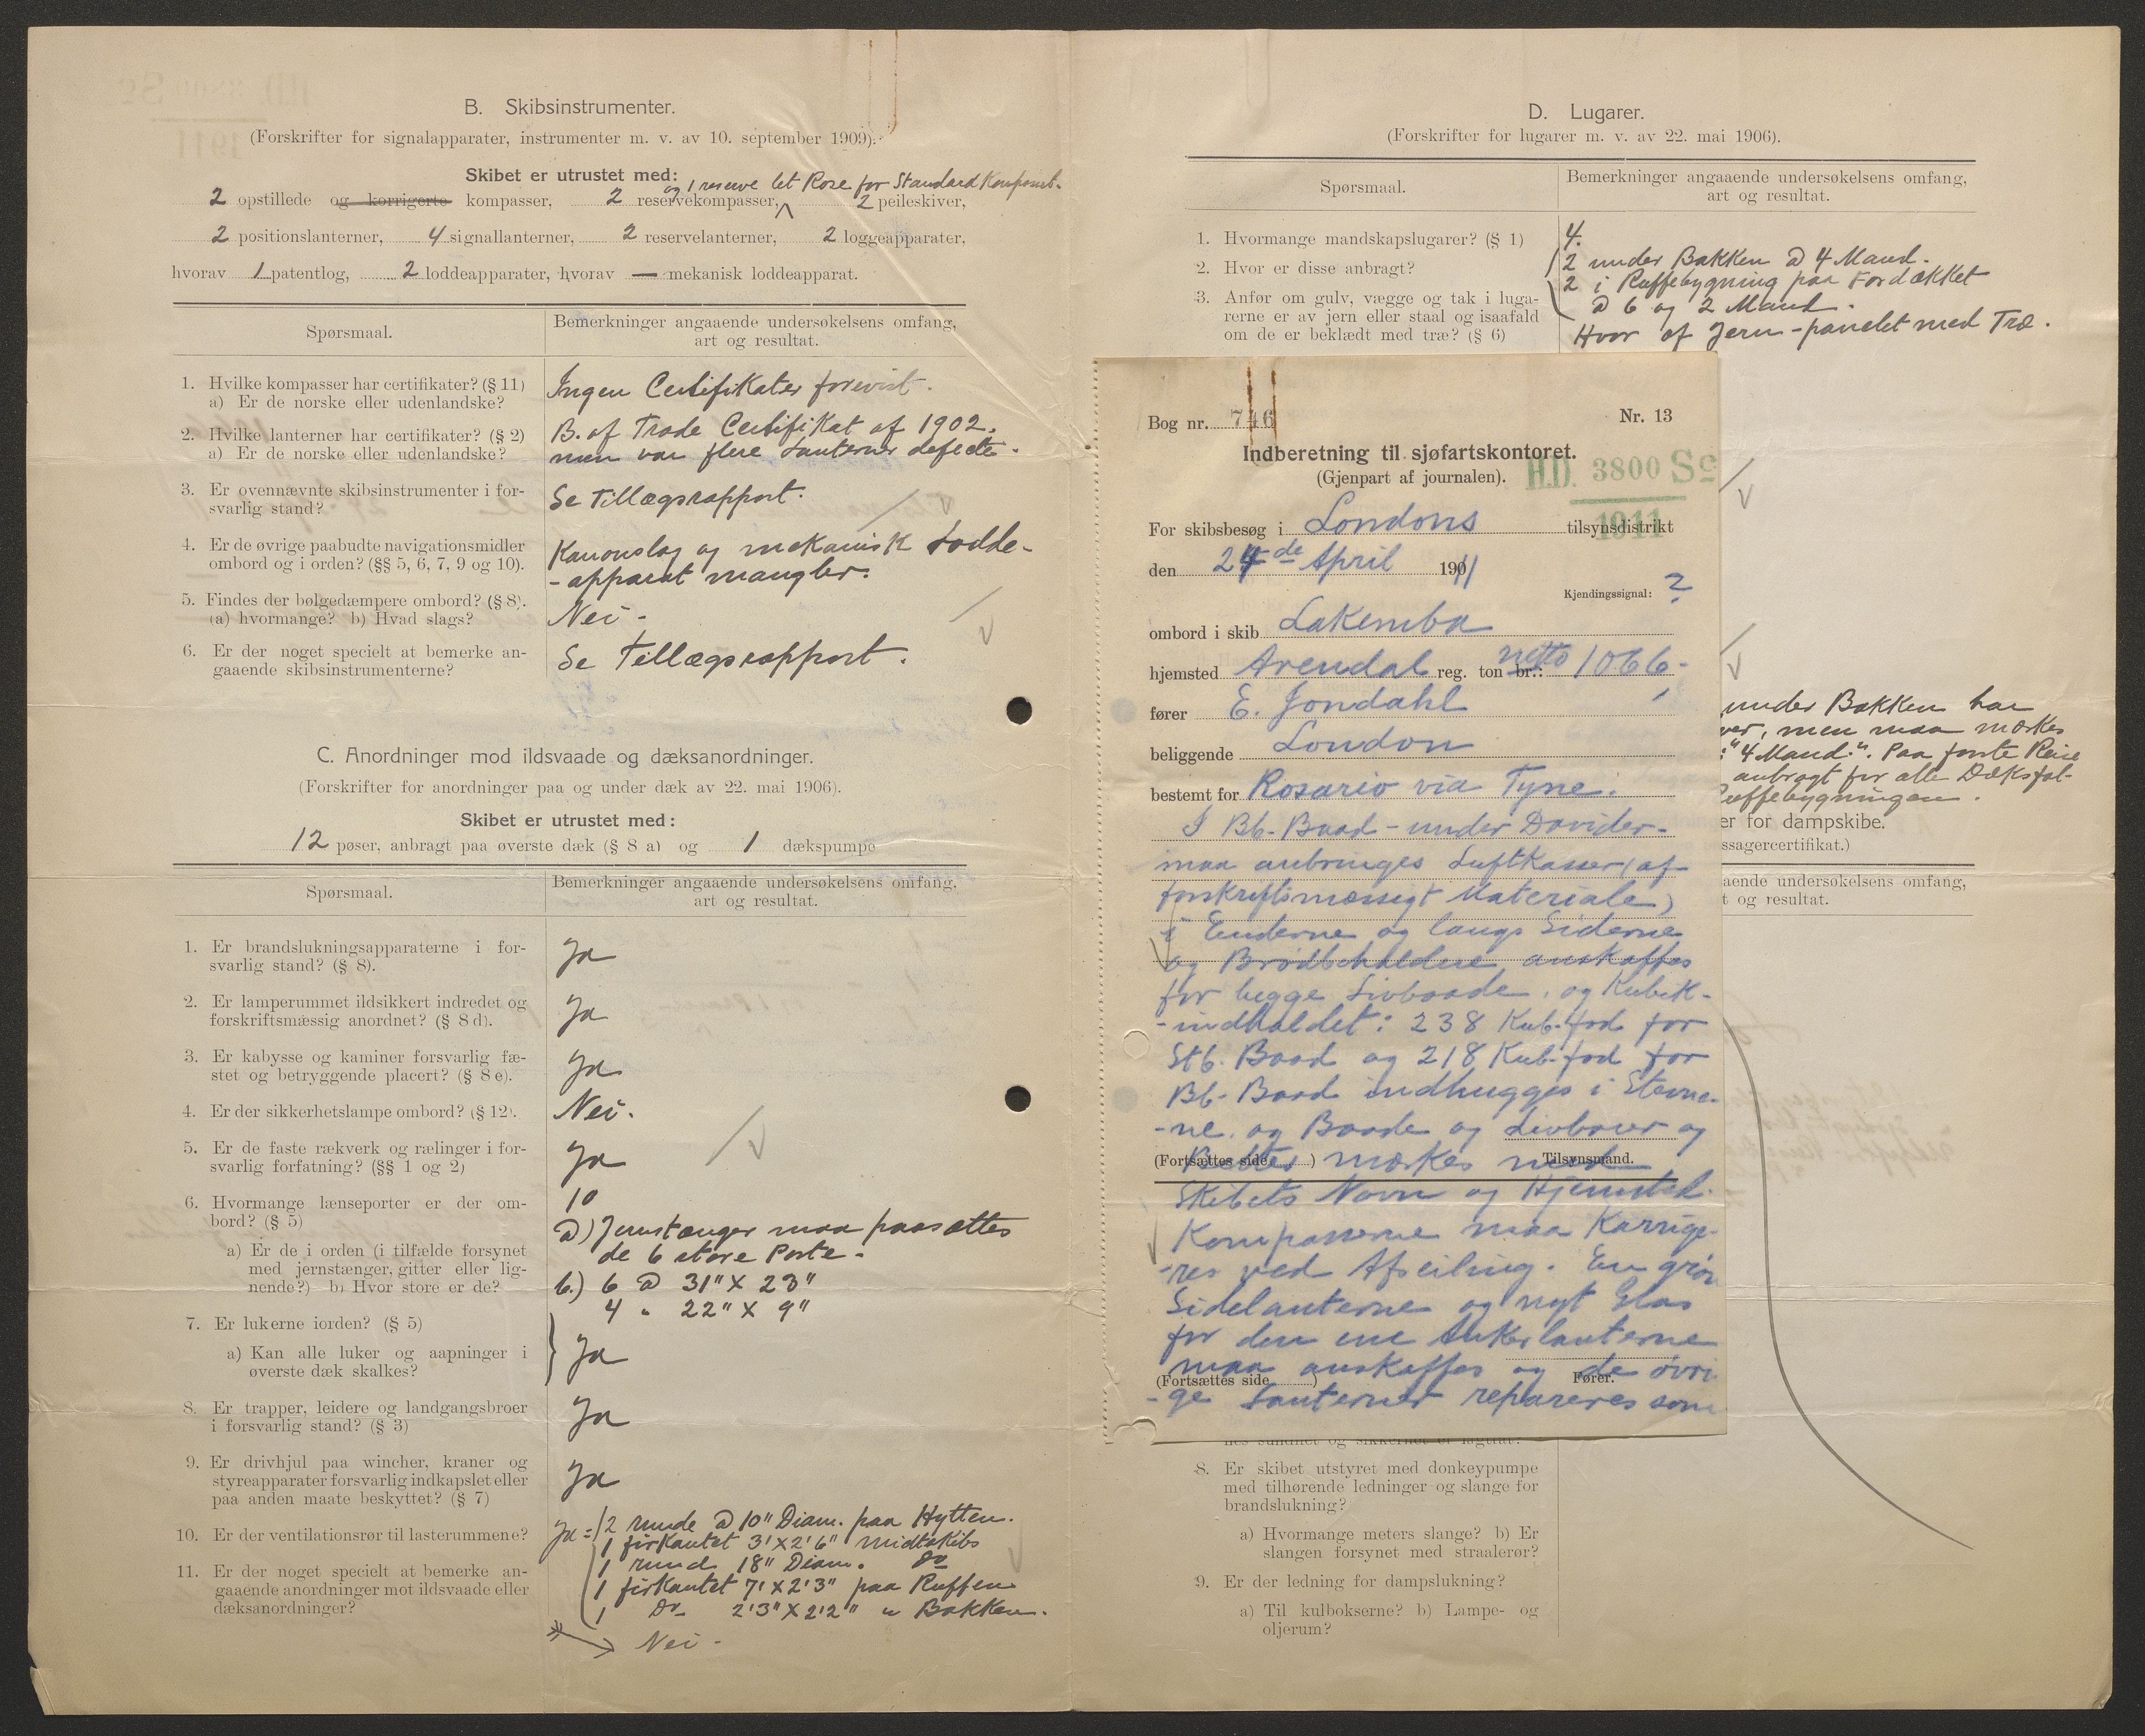 B. Skibsinstrumenter.
(Forskrifter for signalapparater, instrumenter m. v. av 10. september 1909).
Skibet er utrustet med:
og 1 reserve let Rose for Standard Kompasset.
2 opstillede og korrigerte kompasser, 2 reservekompasser, 2 peileskiver,
2 positionslanterner, 4 signallanterner, 2 reservelanterner, 2 loggeapparater,
hvorav 1 patentlog, 2 loddeapparater, hvorav — mekanisk loddeapparat.
Spørsmaal.
Bemerkninger angaaende undersøkelsens omfang,
art og resultat.
1. Hvilke kompasser har certifikater? (§ 11)
a) Er de norske eller udenlandske?
Ingen Certifikater forevist.
2. Hvilke lanterner har certifikater? (§ 2)
a) Er de norske eller udenlandske?
B. of Trade Certifikat af 1902.
men var flere Lanterner defecte.
3. Er ovennævnte skibsinstrumenter i for-
svarlig stand?
Se Tillægsrapport.
4. Er de øvrige paabudte navigationsmidler
ombord og i orden? (§§ 5, 6, 7, 9 og 10).
Kanonslag og mekanisk Lodde-
-apparat mangler.
5. Findes der bølgedæmpere ombord? (§ 8).
(a) hvormange? b) Hvad slags?
Nei -
6. Er der noget specielt at bemerke an-
gaaende skibsinstrumenterne?
Se Tillægsrapport.
C. Anordninger mod ildsvaade og dæksanordninger.
(Forskrifter for anordninger paa og under dæk av 22. mai 1906).
Skibet er utrustet med:
12 pøser, anbragt paa øverste dæk (§ 8 a) og 1 dækspumpe
Spørsmaal.
Bemerkninger angaaende undersøkelsens omfang,
art og resultat.
1. Er brandslukningsapparaterne i for-
svarlig stand? (§ 8).
Ja
2. Er lamperummet ildsikkert indredet og
forskriftsmæssig anordnet? (§ 8 d).
Ja
3. Er kabysse og kaminer forsvarlig fæ-
stet og betryggende placert? (§ 8 e).
Ja
4. Er der sikkerhetslampe ombord? (§ 12).
Nei.
5. Er de faste rækverk og rælinger i for-
svarlig forfatning? (§§ 1 og 2)
Ja
6. Hvormange lænseporter er der om-
bord? (§ 5)
10
a) Er de i orden (i tilfælde forsynet
med jernstænger, gitter eller lig-
nende?) b) Hvor store er de?
a) Jernstænger maa paasættes
de 6 store Porte.
b.) 6 a 31" X 23"
4 " 22" X 9"
7. Er lukerne iorden? (§ 5)
a) Kan alle luker og aapninger i
øverste dæk skalkes?
Ja
8. Er trapper, leidere og landgangsbroer
i forsvarlig stand? (§ 3)
Ja
9. Er drivhjul paa wincher, kraner og
styreapparater forsvarlig indkapslet eller
paa anden maate beskyttet? (§ 7)
Ja
10. Er der ventilationsrør til lasterummene?
Ja = 2 runde a 10" Diam. paa Hytten.
1 firkantet 3' X 2'6" midtskibs
1 rund 18" Diam. Do
1 firkantet 7' X 2'3" paa Ruffen
1 Do 2'3" X 2'2" " Bakken.
11. Er der noget specielt at bemerke an-
gaaende anordninger mot ildsvaade eller
dæksanordninger?
Nei -
D. Lugarer.
(Forskrifter for lugarer m. v. av 22. mai 1906).
Spørsmaal.
Bemerkninger angaaende undersøkelsens omfang,
art og resultat.
1. Hvormange mandskapslugarer? (§ 1)
4.
2. Hvor er disse anbragt?
2 under Bakken a 4 Mand.
2 i Ruffebygning paa Fordækket
a 6 og 2 Mand.
3. Anfør om gulv, vægge og tak i luga-
rerne er av jern eller staal og isaafald
om de er beklædt med træ? (§ 6)
Hvor af Jern - panelet med Træ.
Bog nr. 746
Nr. 13
Indberetning til sjøfartskontoret.
(Gjenpart af journalen).
H.D. 3800 Sc
1911
For skibsbesøg i Londons tilsynsdistrikt
den 24de April 1911
Kjendingssignal: ?
ombord i skib Lakemba
hjemsted Arendal reg. ton br.: netto 1066-
fører E. Jondahl
beliggende London
bestemt for Rosario via Tyne.
I Bb. Baad - under Davider-
maa anbringes Luftkasser (af
forskriftsmæssigt Materiale)
i Enderne og langs Siderne
og Brødbeholdere anskaffes
for begge Livbaade. og Kubik-
-indholdet: 238 Kub. fod for
Stb. Baad og 218 Kub. fod for
Bb. Baad indhugges i Stevne-
-ne. og Baade og Livbøier og
(Fortsættes side )
Tilsynsmand.
mærkes med
Skibets Navn og Hjemsted.
Kompasserne maa Korrige-
-res ved Afseiling. En grøn
Sidelanterne og nyt Glas
for den ene Ankerlanterne
maa anskaffes og de øvri
(Fortsættes side )
Fører.
-ge Lanterner repareres som
under Bakken har
ver, men maa mærkes
: "4 Mand". Paa første Reise
anbragt for alle Dæksfol-
Ruffebygningen.
er for dampskibe.
ssagercertifikat.)
aaende undersøkelsens omfang,
t og resultat.
nes sundhet og sikkerhet er iagttat?
8. Er skibet utstyret med donkeypumpe
med tilhørende ledninger og slange for
brandslukning?
a) Hvormange meters slange? b) Er
slangen forsynet med straalerør?
9. Er der ledning for dampslukning?
a) Til kulbokserne? b) Lampe- og
oljerum?